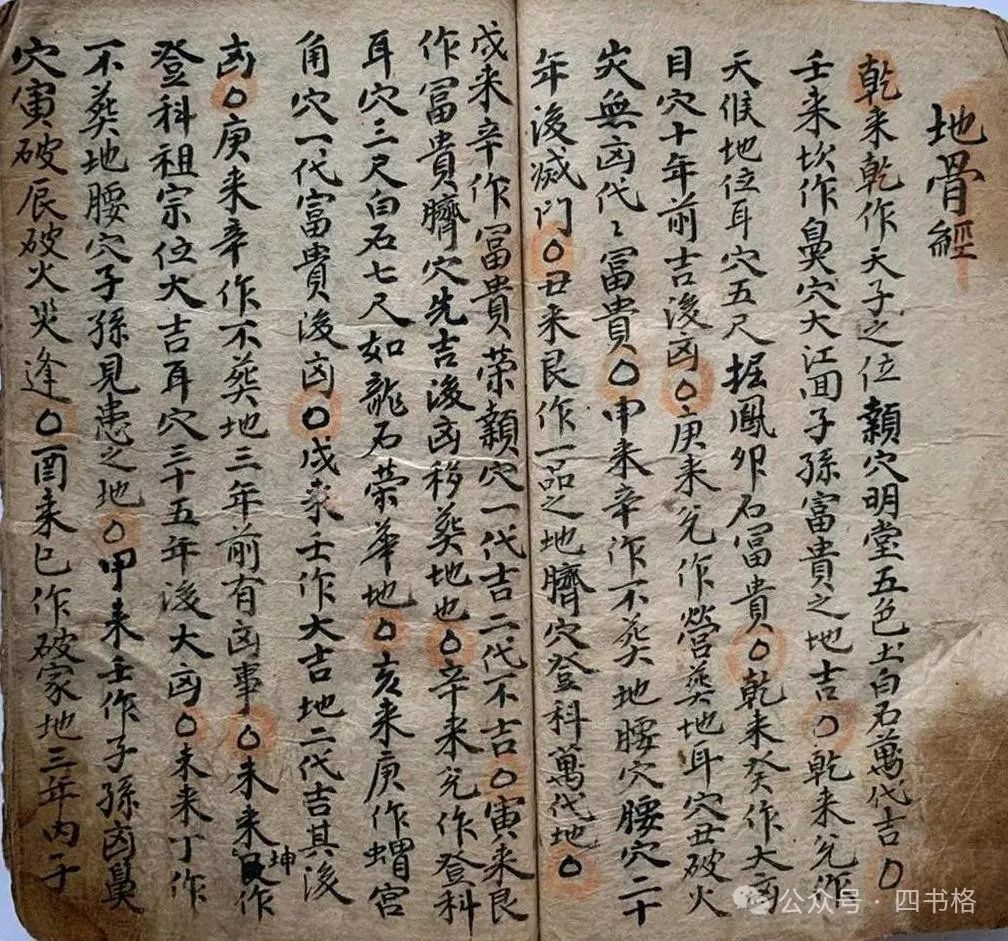 地骨經
乾来乾作天子之位顙穴明堂五色土白石萬代吉〇
壬来坎作鼻穴大江面子孫富貴之地吉〇乾来兊作
天候地位耳穴五尺掘鳳卵石冨貴〇乾来癸作大凶
目穴十年前吉後凶〇庚来兊作葬地耳穴丑破火
灾無凶代〻冨貴〇申来辛作不葬地腰穴腰穴二十
年後滅门〇丑来艮作一品之地臍穴登科萬代地〇
戌来辛作冨貴荣顙穴一代吉二代不吉〇寅来艮
作冨貴臍穴先吉後凶移葬地也〇辛来兊作登科
耳穴三尺白石七尺如龍石荣華地〇亥来庚作蝟宫
角穴一代富貴後凶〇戌来壬作大吉地二代吉其後
凶〇庚来辛作不葬地三年前有凶事〇未来坤作
登科祖宗位大吉耳穴三十五年後大凶〇未来丁作
不葬地腰穴子孫見患之地〇甲来壬作子孫凶鼻
穴寅破辰破火灾逢〇酉来巳作破家地三年内子
公众号·四书格